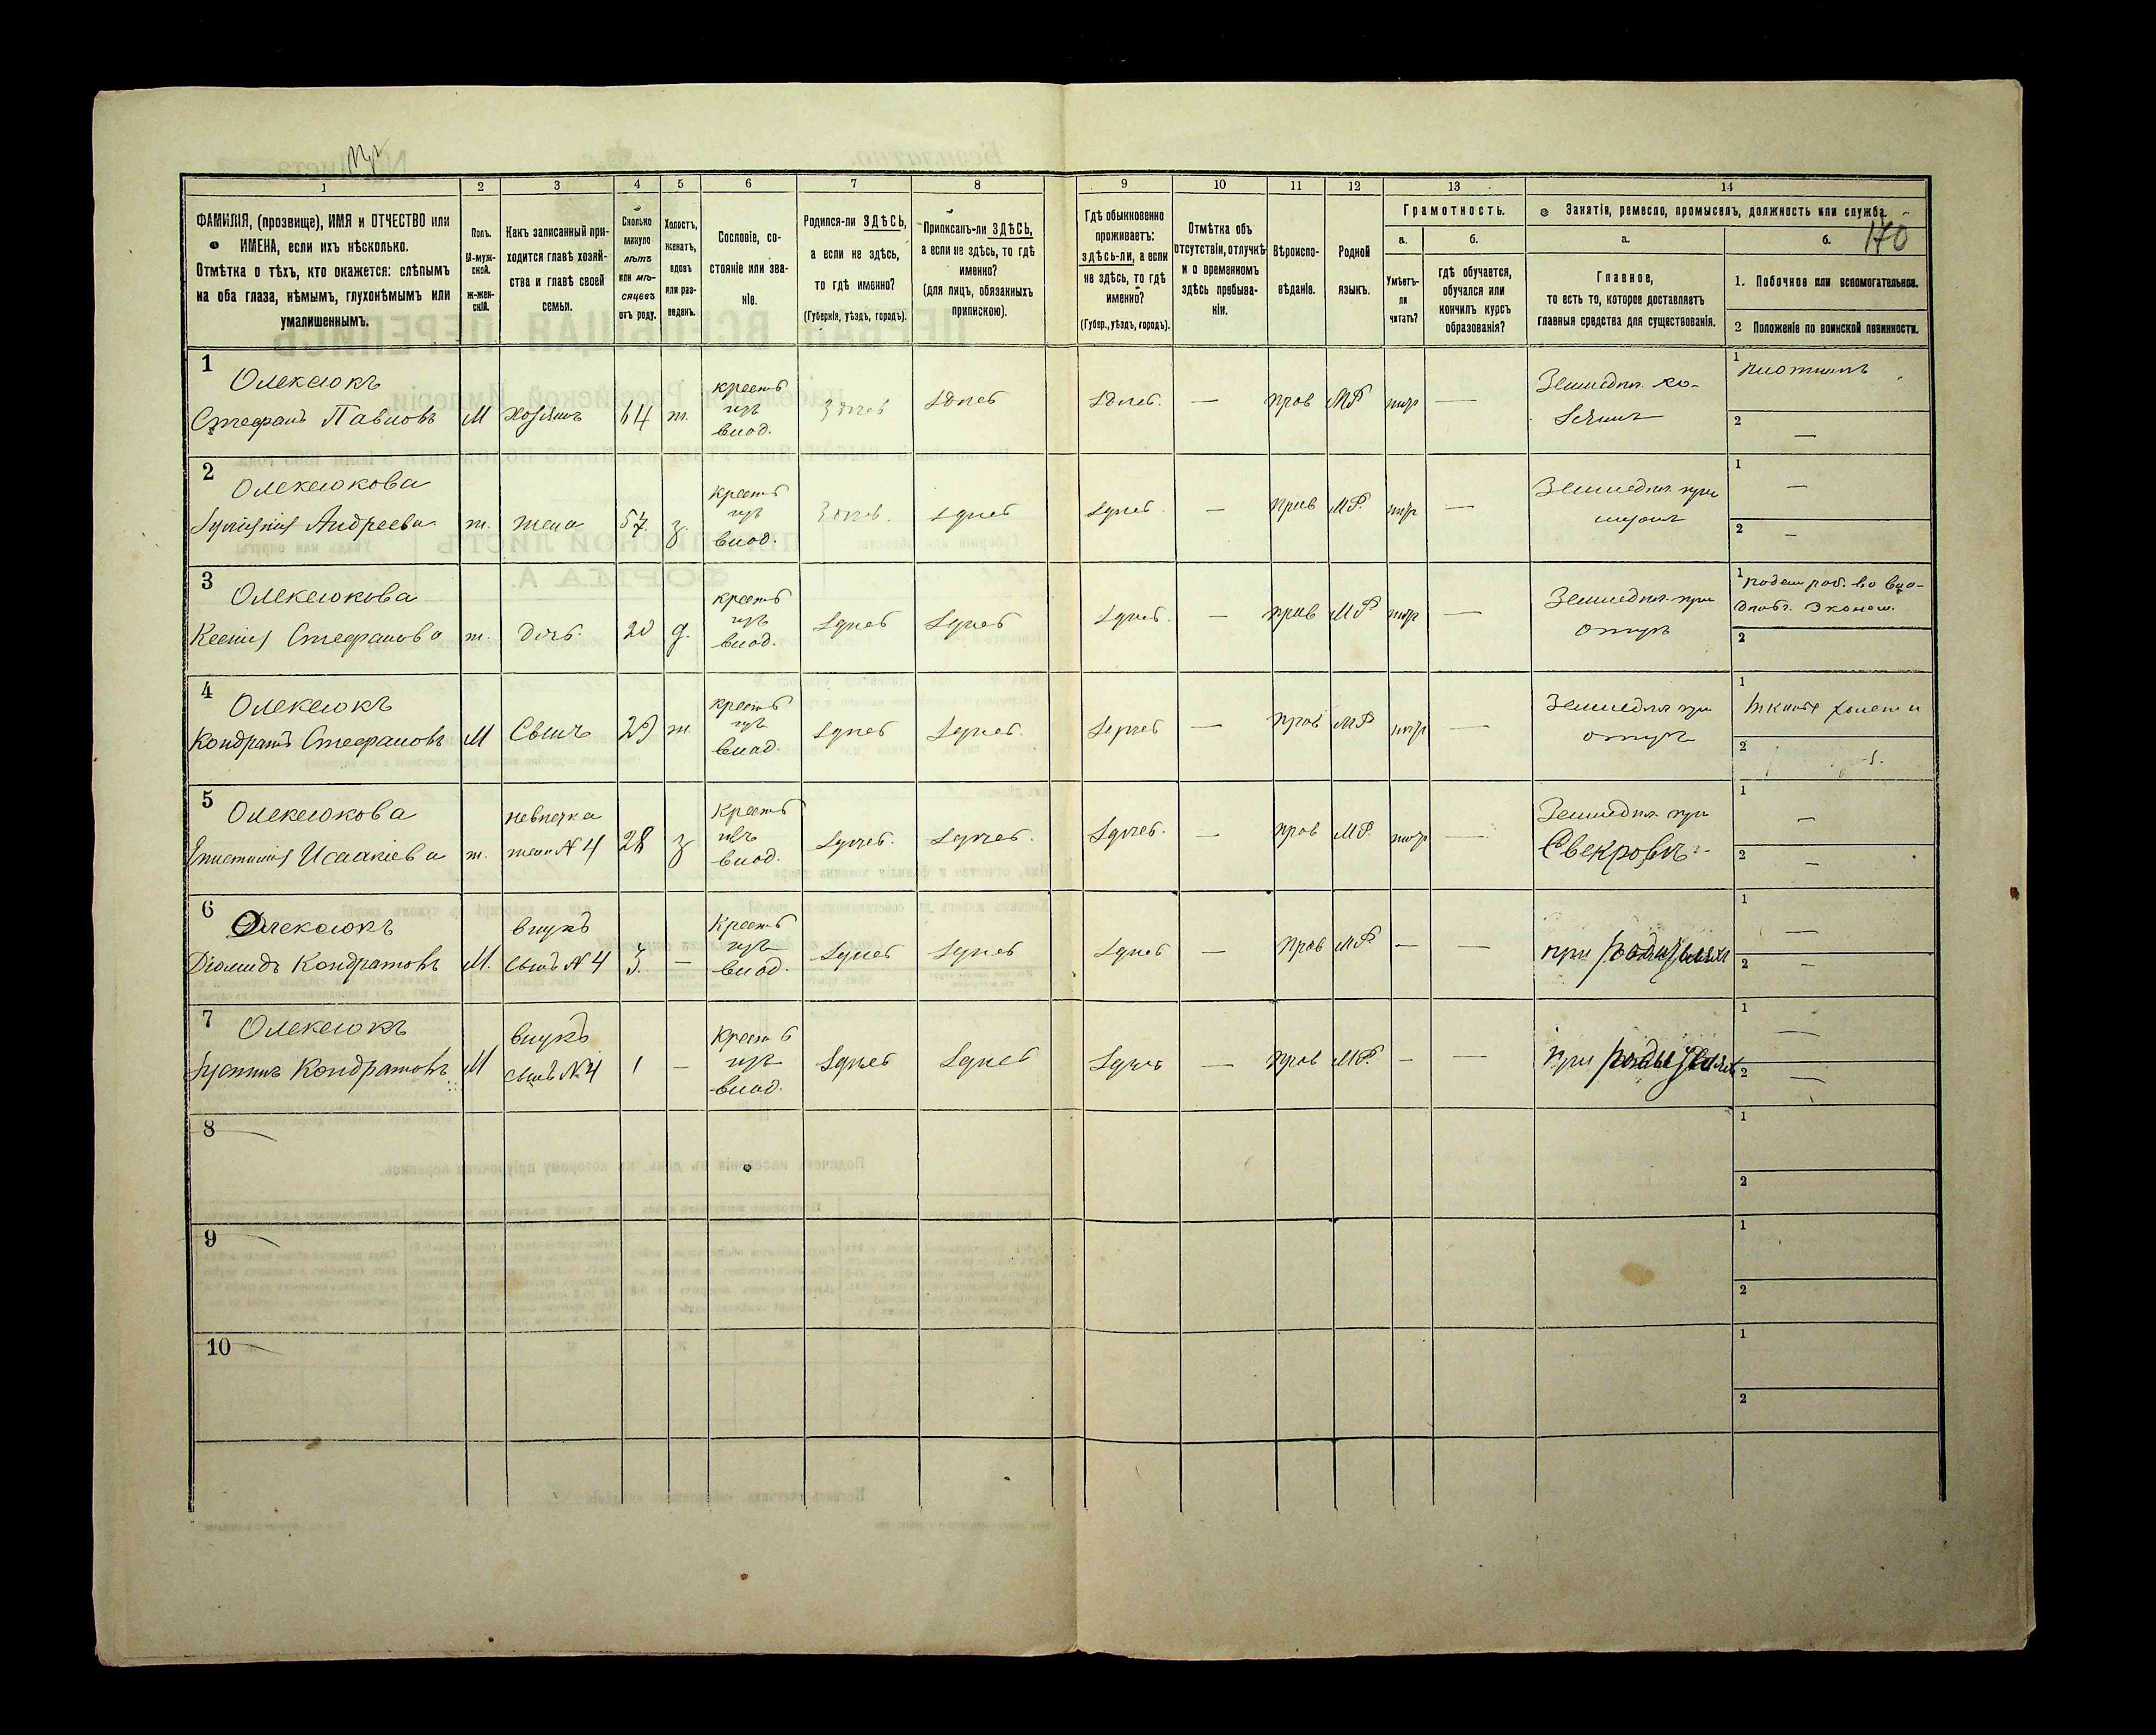 170
1
2
3
4
5
6
7
8
9
10
11
12
13
14
ФАМИЛІЯ, (прозвище), ИМЯ и ОТЧЕСТВО или
ИМЕНА, если ихъ нѣсколько.
Отмѣтка о тѣхъ, кто окажется: слѣпымъ
на оба глаза, нѣмымъ, глухонѣмымъ или
умалишеннымъ.
Полъ.
М-муж-
ской.
ж-жен-
скій.
Какъ записанный при-
ходится главѣ хозяй-
ства и главѣ своей
семьи.
Сколько
минуло
лѣтъ
или мѣ-
сяцевъ
отъ роду.
Холостъ,
женатъ,
вдовъ
или раз-
веденъ.
Сословіе, со-
стояніе или зва-
ніе.
Родился-ли ЗДѢСЬ,
а если не здѣсь,
то гдѣ именно?
(Губернія, уѣздъ, городъ).
Приписанъ-ли ЗДѢСЬ,
а если не здѣсь, то гдѣ
именно?
(для лицъ, обязанныхъ
припискою).
Гдѣ обыкновенно
проживаетъ:
здѣсь-ли, а если
не здѣсь, то гдѣ
именно?
(Губер., уѣздъ, городъ).
Отмѣтка объ
отсутствіи, отлучкѣ
и о временномъ
здѣсь пребыва-
ніи.
Вѣроиспо-
вѣданіе.
Родной
языкъ.
Грамотность.
а.
Умѣетъ-
ли
читать?
б.
гдѣ обучается,
обучался или
кончилъ курсъ
образованія?
Занятіе, ремесло, промыселъ, должность или служба.
а.
Главное,
то есть то, которое доставляетъ
главныя средства для существованія.
б.
1. Побочное или вспомогательное.
2 Положеніе по воинской повинности.
1
Олексюкъ
Стефанъ Павловъ
М
хозяинъ
64
ж.
крест
изъ
влад.
здѣсь
здѣсь
здѣсь.
—
прав
МР
—
Земледѣл. хо-
зяинъ
1 плотникъ
2 —
2
Олексюкова
Андреева
ж.
жена
57
з.
крест
изъ
влад.
здѣсь.
здѣсь
здѣсь.
—
прав
МР.
—
Земледѣл. при
мужѣ
1 —
2 —
3
Олексюкова
Ксенія Стефанова
ж.
дочь.
20
д.
крест
изъ
влад.
здѣсь
здѣсь
здѣсь.
—
прав
МР
—
Земледѣл. при
отцѣ
1
2
4
Олексюкъ
Кондратъ Стефановъ
М
Сынъ
29
ж.
крест
изъ
влад.
здѣсь
здѣсь.
здѣсь
—
прав
МР
—
Земледѣл при
отцѣ
1
2
5
Олексюкова
Исаакіева
ж.
невѣстка
жена № 4
28
з
Крест
изъ
влад.
здѣсь.
здѣсь.
здѣсь.
—
прав
МР.
—
Земледѣл. при
Свекровѣ
1 —
2 —
6
Олексюкъ
Діомидъ Кондратовъ
М.
внукъ
сынъ № 4
3.
—
Крест
изъ
влад.
здѣсь
здѣсь
здѣсь
—
прав
МР
—
—
при родителяхъ
1 —
2 —
7
Олексюкъ
Іустинъ Кондратовъ
М
внукъ
сынъ № 4
1
—
Крест
изъ
влад.
здѣсь
здѣсь
здѣсь
—
прав
МР.
—
—
при родителяхъ
1 —
2 —
8
1
2
9
1
2
10
1
2